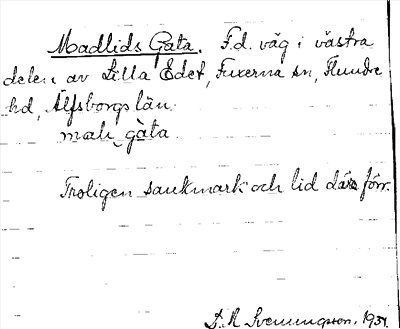 Madlids Gata. F.d. väg i västra
delen av Lilla Edet, Fuxerna sn, Flundre
hd, Älfsborgs län.
mali gàta
Troligen sankmark och lid där förr.
S. A. Svenningson. 1931.